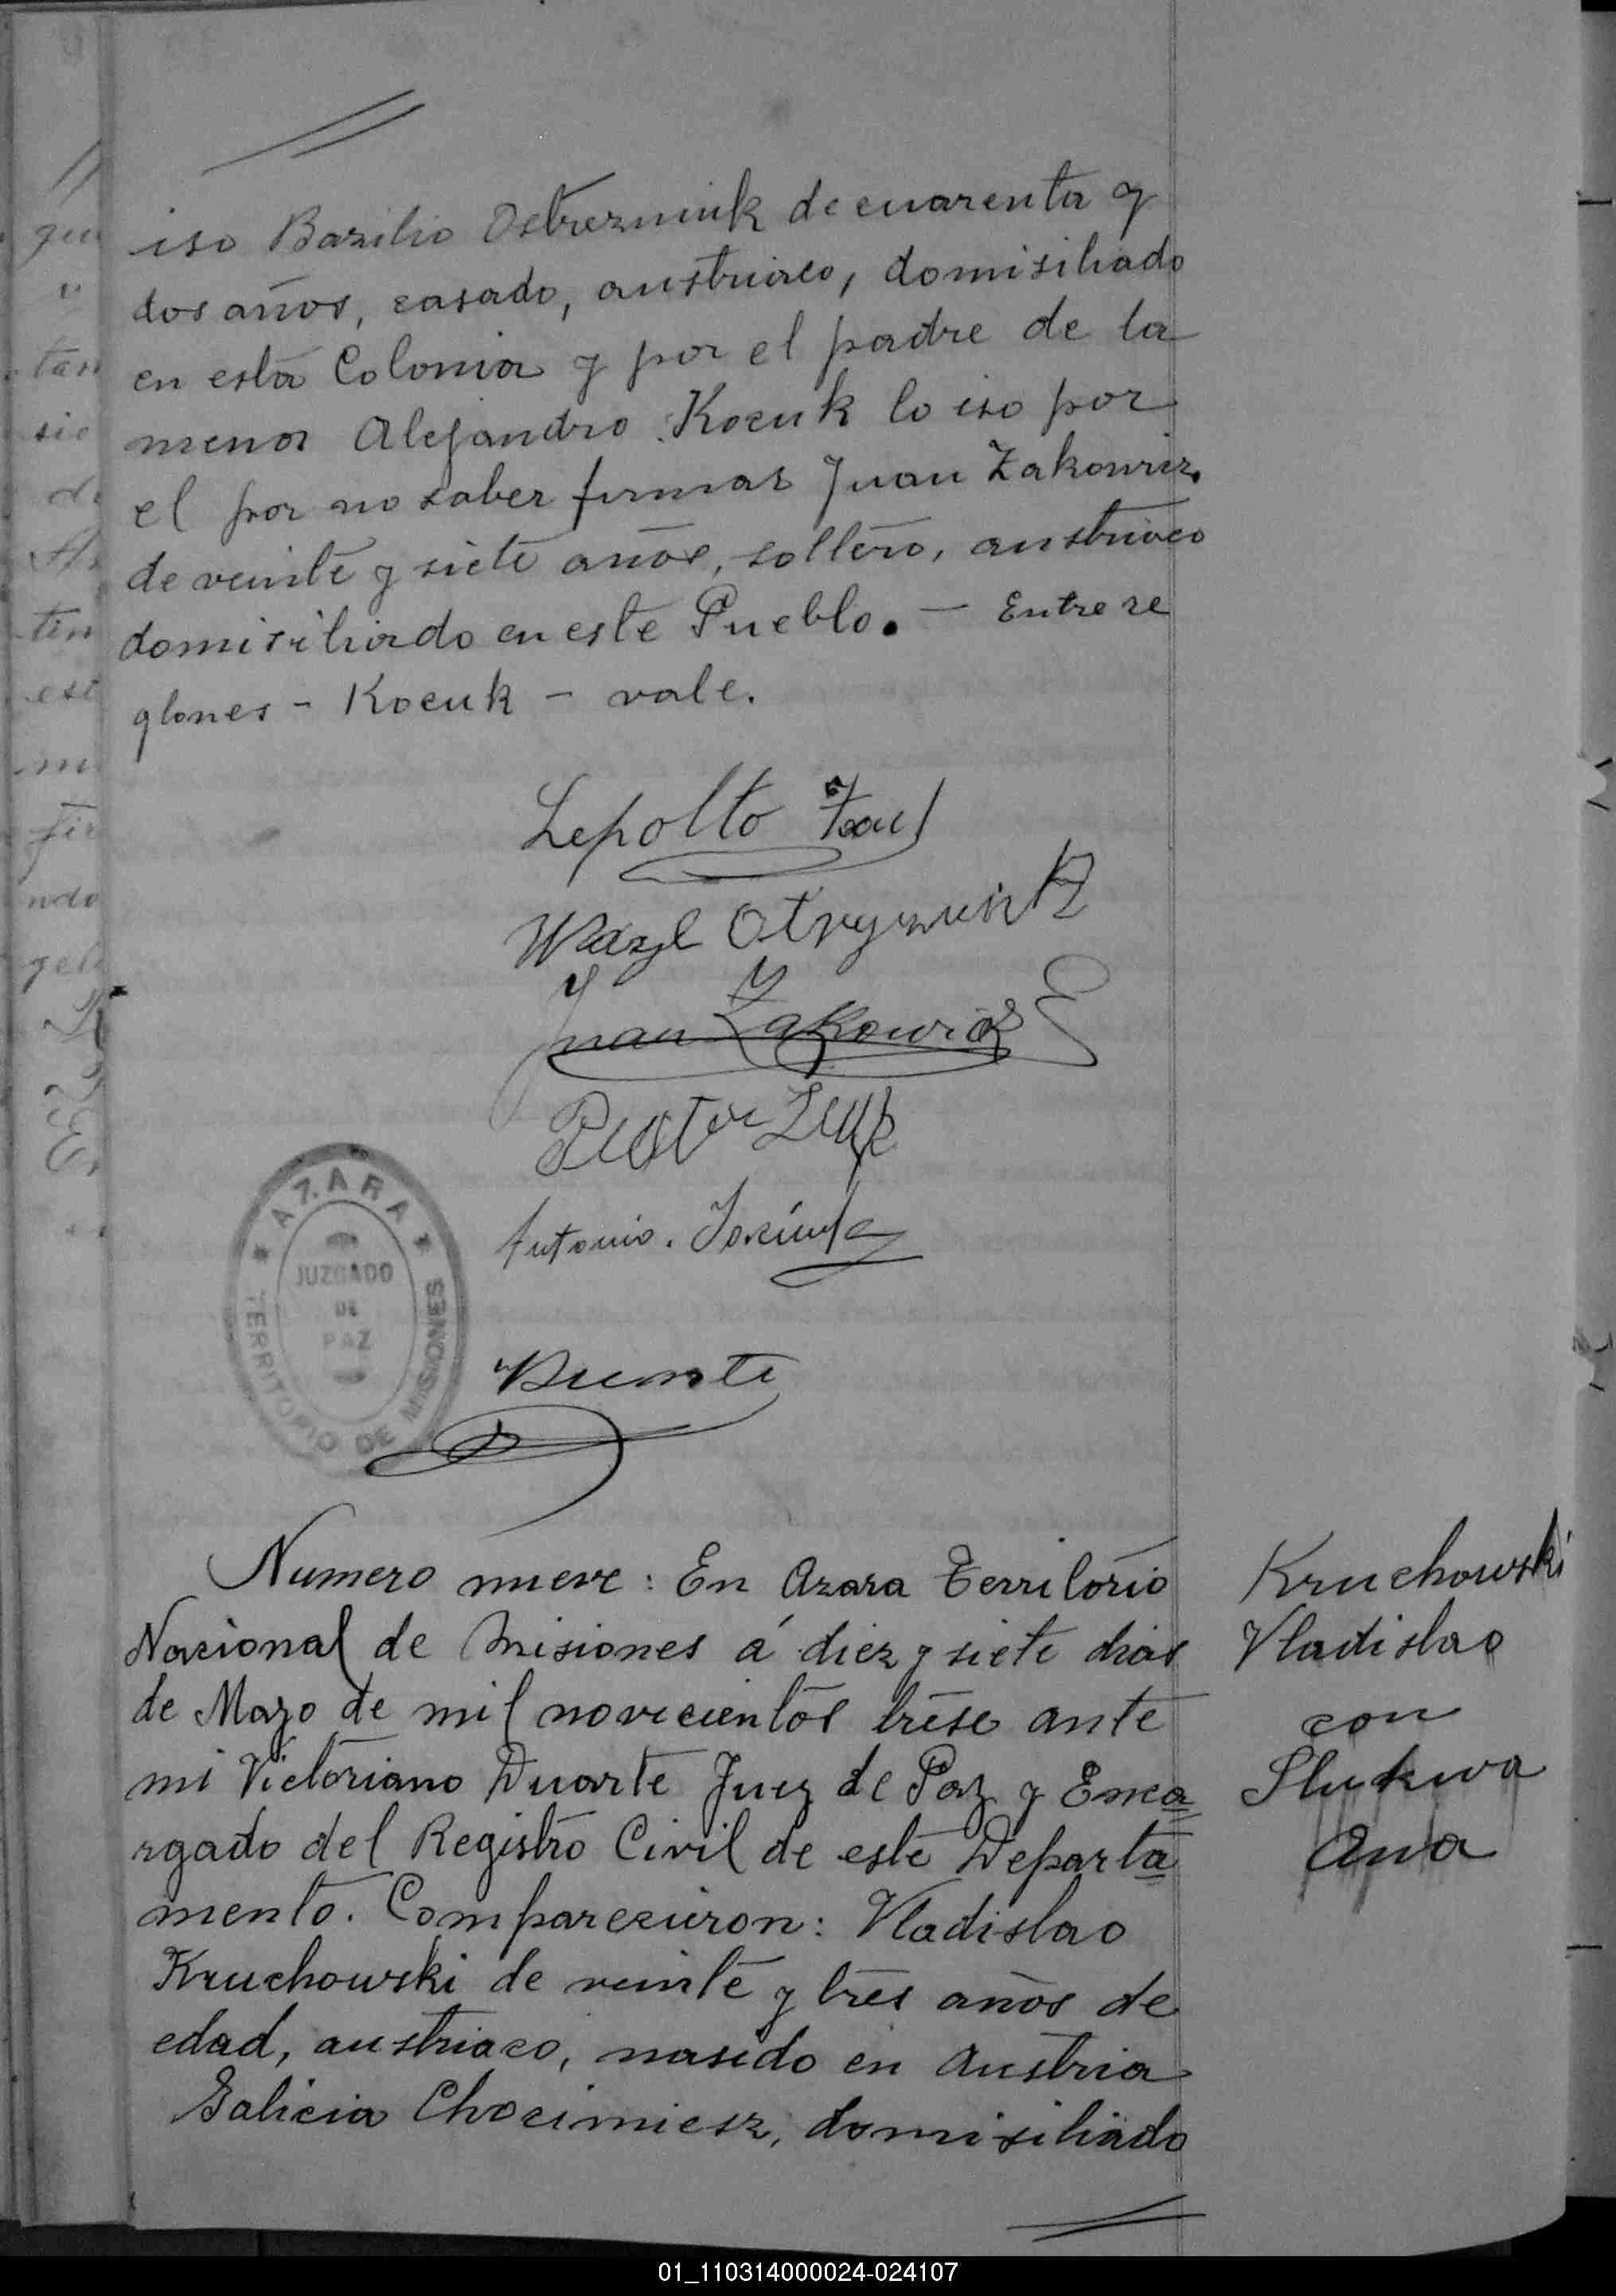 iso Bazilio Ostrezniuk de cuarenta y
dos años, casado, austriaco, domisiliado
en esta Colonia y por el padre de la
menor Alejandro Kocuk lo iso por
el por no saber firmar Juan Zakowicz
de veinte y siete años, soltero, austriaco
domisiliado en este Pueblo. — Entre re
glones - Kocuk - vale.
Lepolto
Wazyl
Juan Zakowicz
Antonio.
AZARA
JUZGADO
DE
PAZ
TERRITORIO DE MISIONES
Duarte
Numero nueve: En Azara Territorio
Nacional de Misiones á diez y siete dias
de Mayo de mil novecientos trese ante
mi Victoriano Duarte Juez de Paz y Enca
rgado del Registro Civil de este Departa
mento. Comparecieron: Vladislao
Kruchowski de veinte y tres años de
edad, austriaco, nasido en Austria
Galicia Chocimiesz, domisiliado
Kruchowski
Vladislao
con
Slukwa
Ana
01_110314000024-024107